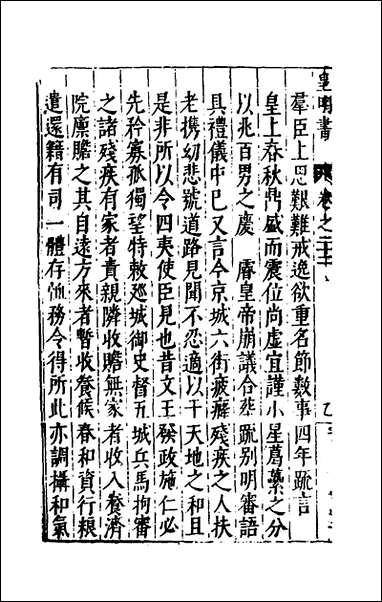 皇明書　卷之二十二
羣臣上恩艱難戒逸欲重名節數事四年䟽言
皇上春秋鼎盛而震位尚虛宜謹小星葛藟之分
以兆百男之慶　睿皇帝崩議合葬䟽别明審語
具禮儀中已又言今京城六街疲癃殘疾之人扶
老携幼悲號道路見聞不忍適以干天地之和且
是非所以令四夷使臣見也昔文王發政施仁必
先矜寡孤獨望特敕廵城御史督五城兵馬拘審
之諸殘疾有家者責親隣收贍無家者收入養濟
院廪贍之其自遠方來者暫收養候春和資行粮
遣還籍有司一體存恤務令得所此亦調攝和氣